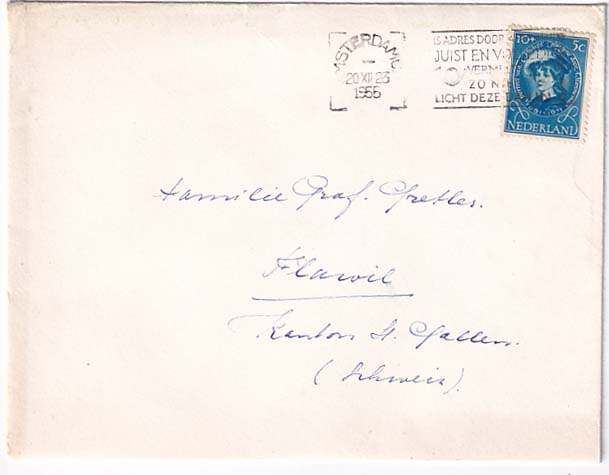 AMSTERDAM C.
20 XII 23
1955
IS ADRES DOOR
JUIST EN VO
VERM
ZO N
LICHT DEZE
10+ 5c
NEDERLAND
Familie Graf.
Flawil
Kanton St. Gallen.
(Schweiz).